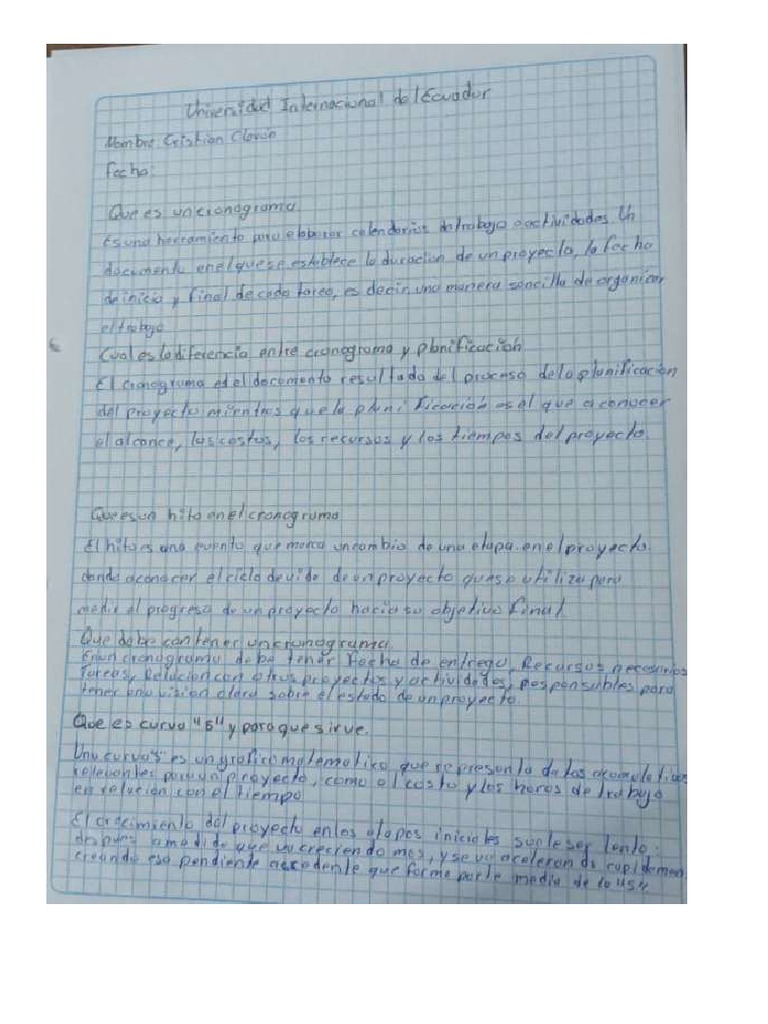 Universidad Internacional del Ecuador
Nombre: Cristian
Fecha:
Que es un cronograma
Es una herramienta para elaborar calendarios de trabajo o actividades. Un
documento en el que se establece la duracion de un proyecto, la fecha
de inicio y final de cada tarea, es decir, una manera sencilla de organizar
el trabajo
Cual es la diferencia entre cronograma y planificación
El cronograma es el documento resultado del proceso de la planificación
del proyecto mientras que la planificación es el que a conocer
el alcance, los costos, los recursos y los tiempos del proyecto.
Que es un hito en el cronograma
El hito es una que marca un cambio de una etapa en el proyecto.
dando a conocer el ciclo de vida de un proyecto que se utiliza para
medir el progreso de un proyecto hacia su objetivo final
Que debe contener un cronograma.
En un cronograma debe tener Fecha de entrega, Recursos necesarios
Tareas, Relacion con otros proyectos y actividades, responsables para
tener una vision clara sobre el estado de un proyecto.
Que es curva "S" y para que sirve.
Una curva "s" es un grafico matematico que representa datos acumulativos
relevantes para un proyecto, como el costo y las horas de trabajo
en relucion con el tiempo
El crecimiento del proyecto en las etapas iniciales suele ser lento.
despues a medida que va creciendo mas, y se va acelerando
creando esa pendiente que forma parte media de la "S".